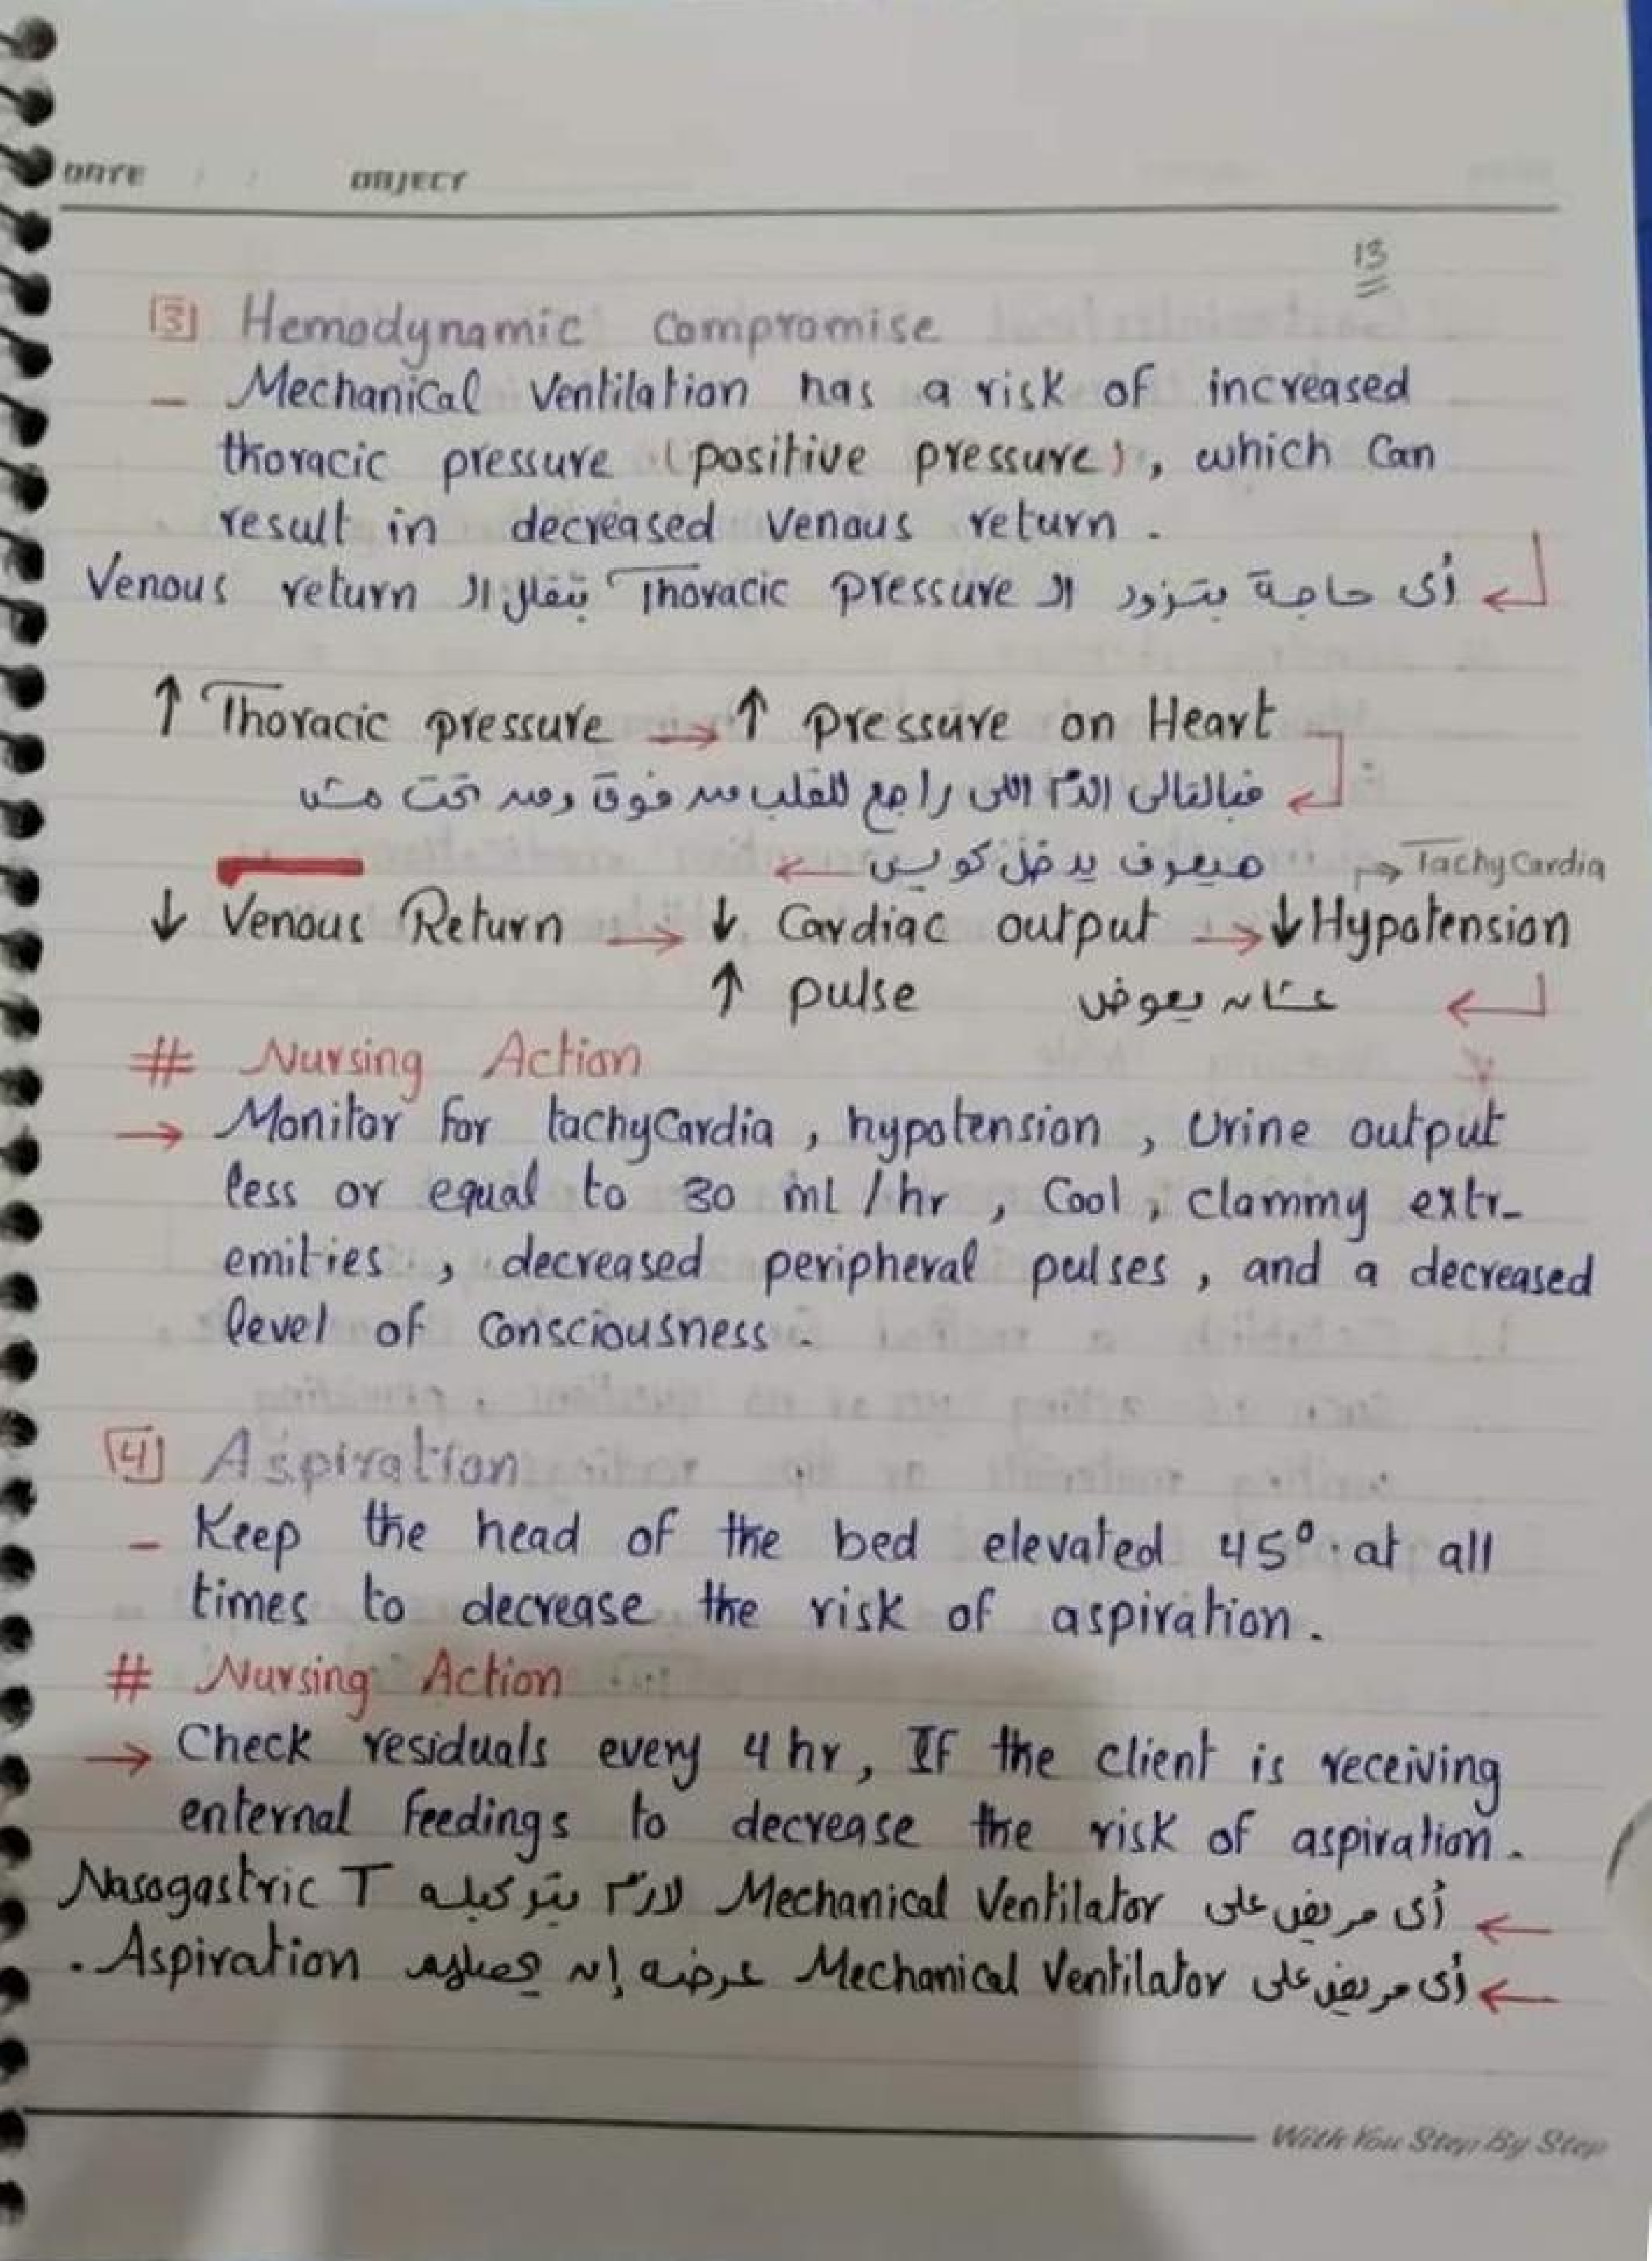 DATE / / OBJECT
13
3 Hemodynamic compromise
- Mechanical Ventilation has a risk of increased
thoracic pressure (positive pressure), which Can
result in decreased Venous return.
أى حاجة بتزود الـ Thoracic pressure بتقلل الـ Venous return
↑ Thoracic pressure → ↑ pressure on Heart
فبالتالى الدم اللى راجع للقلب من فوق ومن تحت مش
هيعرف يدخل كويس
→ TachyCardia
↓ Venous Return → ↓ Cardiac output → ↓ Hypotension
↑ pulse عشان يعوض
# Nursing Action
→ Monitor for tachyCardia, hypotension, Urine output
less or equal to 30 ml/hr, Cool, clammy extr-
emities, decreased peripheral pulses, and a decreased
level of Consciousness.
4 Aspiration
- Keep the head of the bed elevated 45° at all
times to decrease the risk of aspiration.
# Nursing Action
→ Check residuals every 4 hr, If the client is receiving
enternal feedings to decrease the risk of aspiration.
أى مريض على Mechanical Ventilator لازم يتركبله Nasogastric T
أى مريض على Mechanical Ventilator عرضه إن يحصله Aspiration.
With You Step By Step